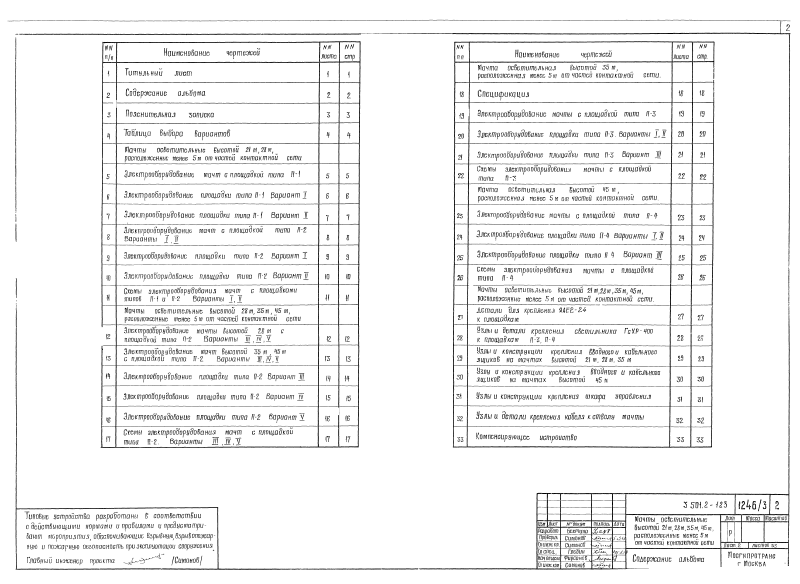 2
NN п/п Наименование чертежей NN листа NN стр
1 Титульный лист 1 1
2 Содержание альбома 2 2
3 Пояснительная записка 3 3
4 Таблица выбора вариантов 4 4
Мачты осветительные высотой 21 м, 28 м,
расположенные менее 5 м от частей контактной сети
5 Электрооборудование мачт с площадкой типа П-1 5 5
6 Электрооборудование площадки типа П-1 Вариант I 6 6
7 Электрооборудование площадки типа П-1 Вариант II 7 7
8 Электрооборудование мачт с площадкой типа П-2
Варианты I, II 8 8
9 Электрооборудование площадки типа П-2 Вариант I 9 9
10 Электрооборудование площадки типа П-2 Вариант II 10 10
11 Схемы электрооборудования мачт с площадками
типов П-1 и П-2 Варианты I, II 11 11
Мачты осветительные высотой 28 м, 35 м, 45 м,
расположенные менее 5 м от частей контактной сети
12 Электрооборудование мачты высотой 28 м с
площадкой типа П-2 Варианты III, IV, V 12 12
13 Электрооборудование мачты высотой 35 м, 45 м
с площадкой типа П-2 Варианты III, IV, V 13 13
14 Электрооборудование площадки типа П-2 вариант III 14 14
15 Электрооборудование площадки типа П-2 Вариант IV 15 15
16 Электрооборудование площадки типа П-2 вариант V 16 16
17 Схемы электрооборудования мачт с площадкой
типа П-2. Варианты III, IV, V 17 17
NN п/п Наименование чертежей NN листа NN стр.
Мачта осветительная высотой 35 м,
расположенная менее 5 м от частей контактной сети.
18 Спецификация 18 18
19 Электрооборудование мачты с площадкой типа П-3 19 19
20 Электрооборудование площадки типа П-3. Варианты I, II 20 20
21 Электрооборудование площадки типа П-3 Вариант III 21 21
22 Схемы электрооборудования мачты с площадкой
типа П-3. 22 22
Мачта осветительная высотой 45 м,
расположенная менее 5 м от частей контактной сети.
23 Электрооборудование мачты с площадкой типа П-4 23 23
24 Электрооборудование площадки типа П-4 Варианты I, II 24 24
25 Электрооборудование площадки типа П 4 Вариант III 25 25
26 Схемы электрооборудования мачты с площадкой
типа П-4. 26 26
Мачты осветительные высотой 21 м, 28 м, 35 м, 45 м,
расположенные менее 5 м от частей контактной сети.
27 Детали для крепления
к площадкам 27 27
28 Узлы и детали крепления светильника ГсХР-400
к площадкам П-3, П-4 28 28
29 Узлы и конструкции крепления вводного и кабельного
ящиков на мачтах высотой 21 м, 28 м, 35 м 29 29
30 Узлы и конструкции крепления вводного и кабельного
ящиков на мачтах высотой 45 м 30 30
31 Узлы и конструкции крепления шкафа управления 31 31
32 Узлы и детали крепления кабеля к стволу мачты 32 32
33 Компенсирующее устройство 33 33
Типовые устройства разработаны в соответствии
с действующими нормами и правилами и предусматри-
вают мероприятия, обеспечивающие взрывную, взрывопожар-
ную и пожарную безопасность при эксплуатации сооружения.
Главный инженер проекта /Самонов/
3.501.2-123 1246/3 2
Мачты осветительные
высотой 21 м, 28 м, 35 м, 45 м,
расположенные менее 5 м
от частей контактной сети
Лит Масса Масштаб
Р
Содержание альбома
Мосгипротранс
г Москва